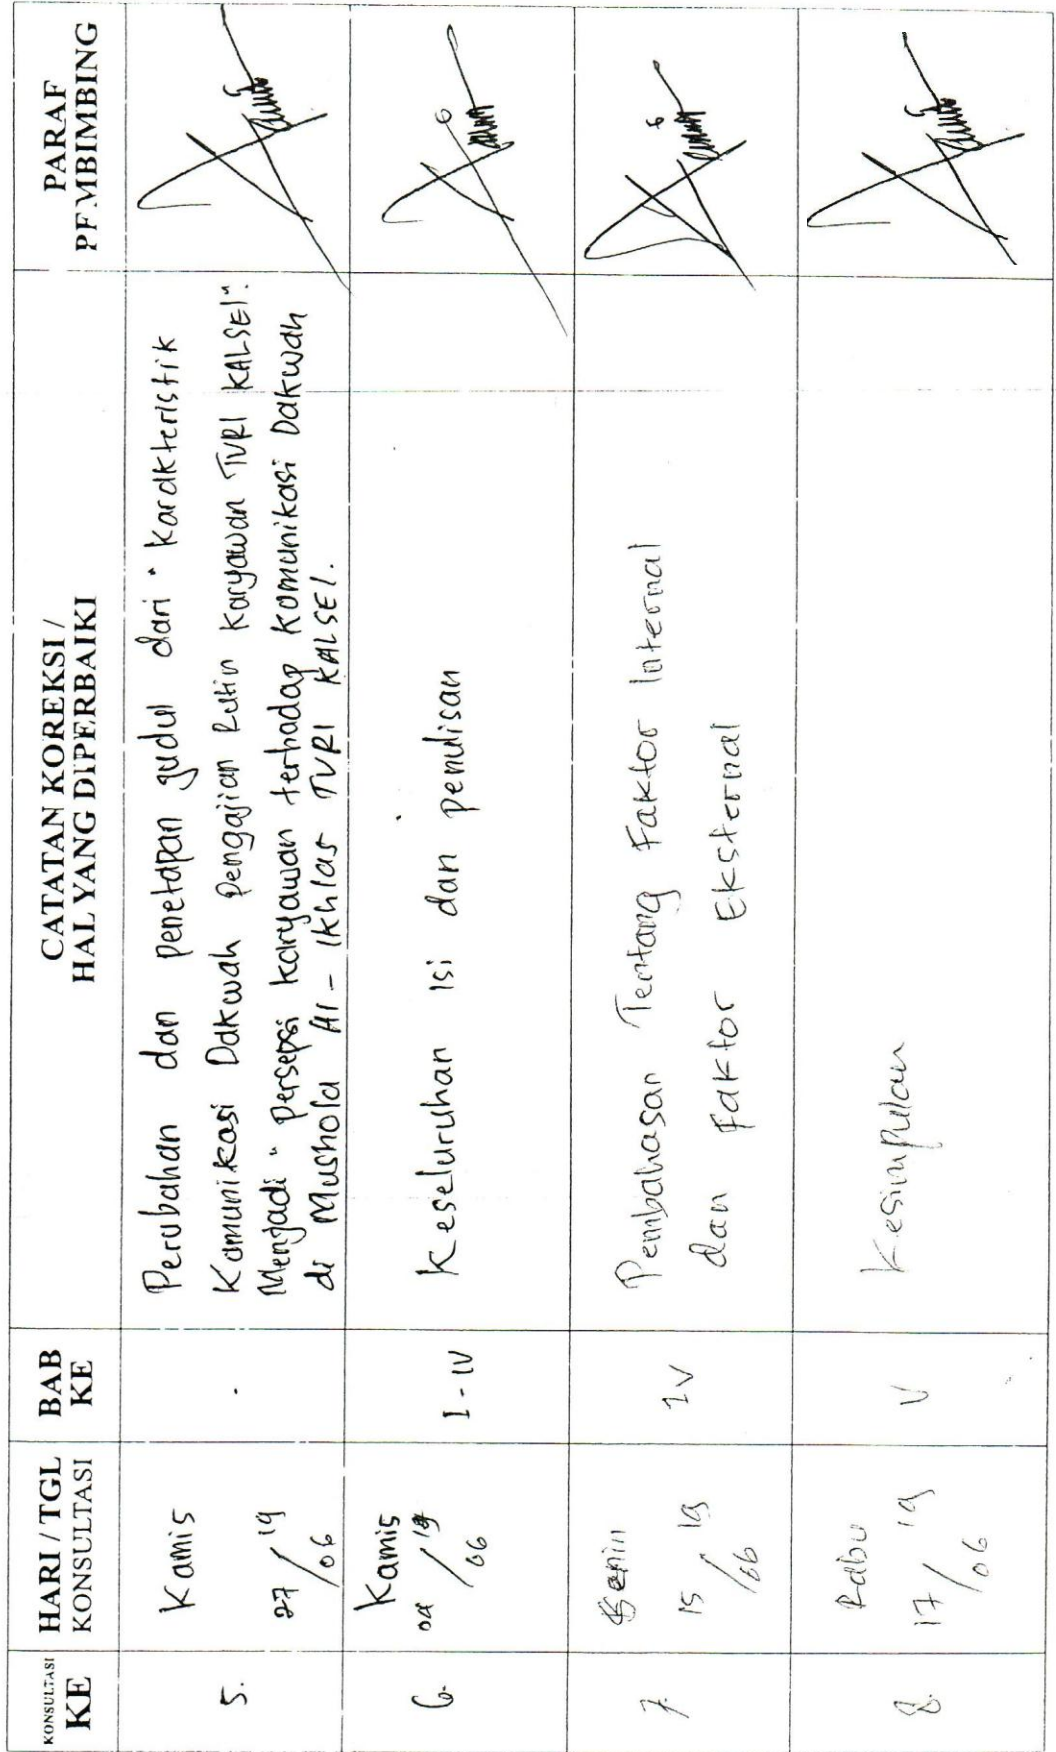 KONSULTASI
KE
HARI / TGL
KONSULTASI
BAB
KE
CATATAN KOREKSI /
HAL YANG DIPERBAIKI
PARAF
PEMBIMBING
5.
Kamis
27/06 19
.
Perubahan dan penetapan judul dari "Karakteristik
Komunikasi Dakwah Pengajian Rutin Karyawan TVRI KALSEL".
Menjadi "Persepsi karyawan terhadap Komunikasi Dakwah
di Mushola Al-Ikhlas TVRI KALSEL.
6.
Kamis
/06 19
I - IV
Keseluruhan Isi dan penulisan
7.
Senin
15/06 19
IV
Pembahasan Tentang Faktor Internal
dan Faktor Eksternal
8.
Rabu
17/06 19
V
Kesimpulan